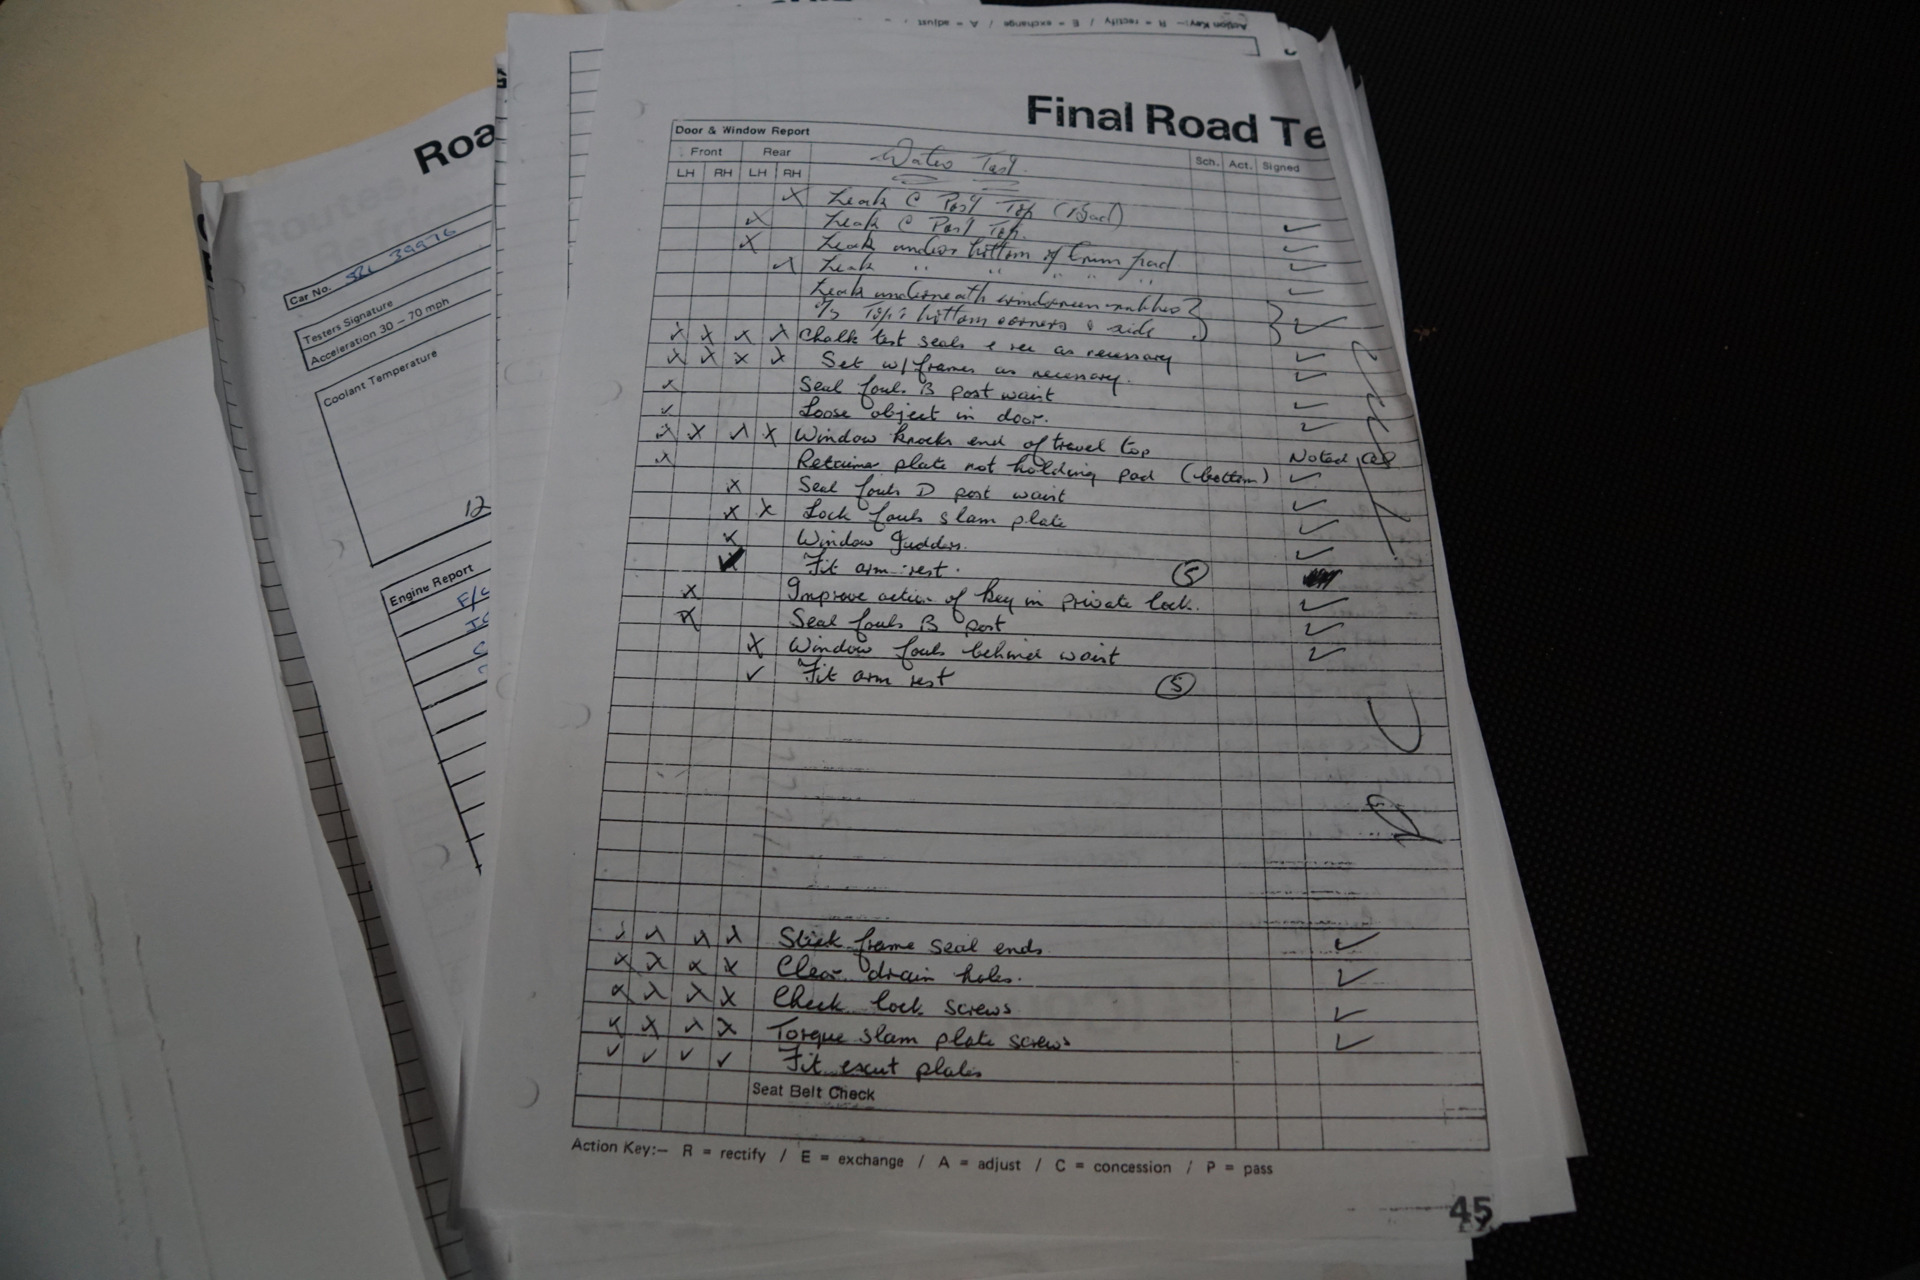 Action Key:— R = rectify / E = exchange / A = adjust /
Final Road Te
Door & Window Report
Front Rear Water Test Sch. Act. Signed
LH RH LH RH
X Leak C Post Top (Bad)
X Leak C Post Top. ✓
X Leak under bottom of trim pad ✓
X Leak " " " " " ✓
Leak underneath windscreen rubber
Top & bottom corners & side ✓
X X X X Chalk test seals & rec as necessary ✓
X X X X Set w/frames as necessary. ✓
X Seal fouls B post waist ✓
✓ Loose object in door. ✓
X X X X Window knocks end of travel top Noted
X Retainer plate not holding pad (bottom) ✓
X Seal fouls D post waist ✓
X X Lock fouls slam plate ✓
X Window judders. ✓
Fit arm rest. 5
X Improve action of key in private lock. ✓
X Seal fouls B post ✓
X Window fouls behind waist ✓
✓ Fit arm rest 5
X X X X Stick frame seal ends ✓
X X X X Clear drain holes. ✓
X X X X Check lock screws ✓
X X X X Torque slam plate screws ✓
✓ ✓ ✓ ✓ Fit escut plates
Seat Belt Check
Action Key:— R = rectify / E = exchange / A = adjust / C = concession / P = pass
45
Roa
Car No. 39976
Testers Signature
Acceleration 30 – 70 mph
Coolant Temperature
12
Engine Report